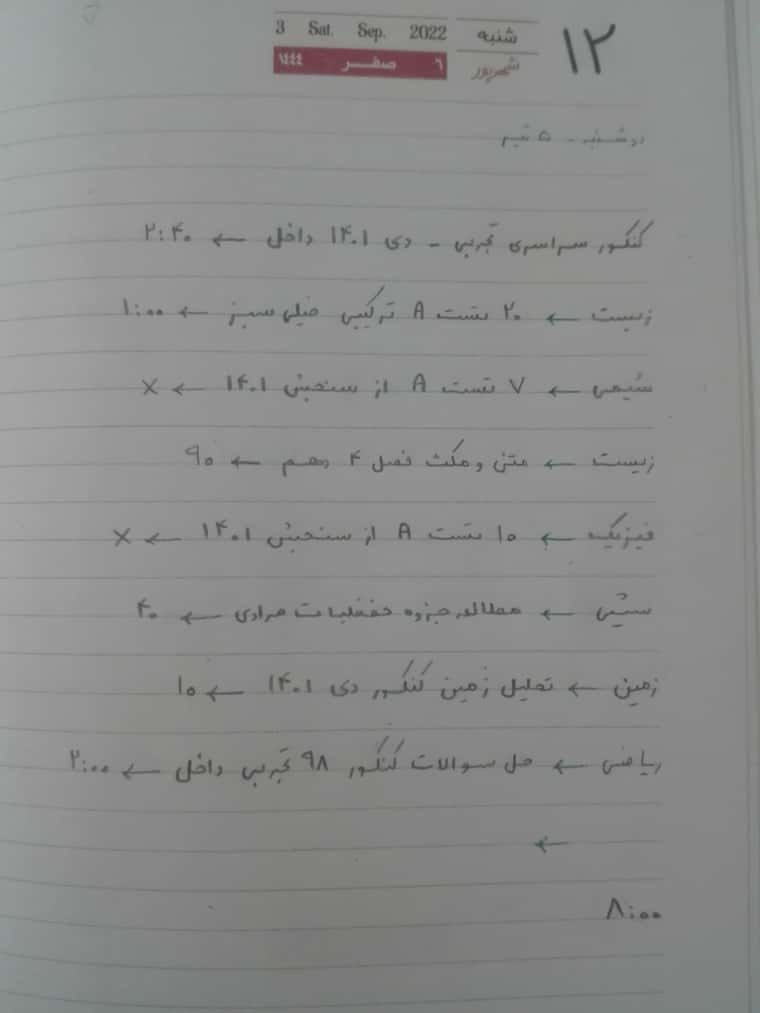 3 Sat. Sep. 2022 شنبه ۱۲
۱٤٤٤ صفر ٦ شهریور
دوشنبه - ۵ تیر
کنکور سراسری تجربی - دی ۱۴۰۱ داخل ← ۲:۴۰
زیست ← ۲۰ تست A ترکیبی خیلی سبز ← ۱:۰۰
شیمی ← ۷ تست A از سنجش ۱۴۰۱ ← ×
زیست ← متن و مکث فصل ۴ دهم ← ۹۰
فیزیک ← ۱۰ تست A از سنجش ۱۴۰۱ ← ×
شیمی ← مطالعه جزوه حفظیات مرادی ← ۴۰
زمین ← تحلیل زمین کنکور دی ۱۴۰۱ ← ۱۰
ریاضی ← حل سوالات کنکور ۹۸ تجربی داخل ← ۲:۰۰
←
۸:۰۰